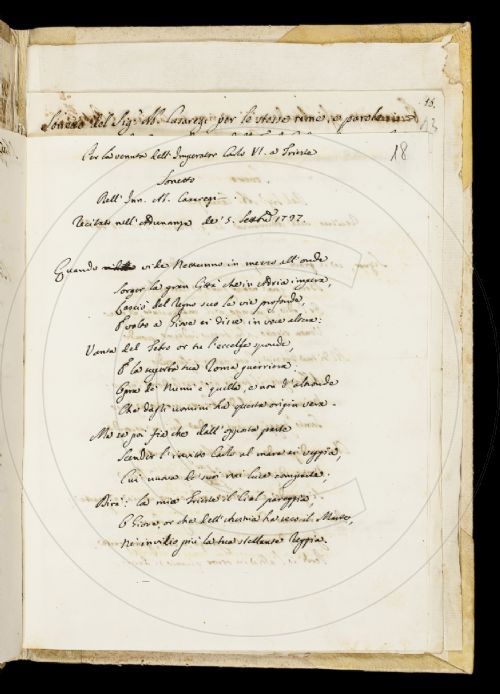 16.
Sonetto del Sig.r M. Casaregi per le stesse rime, e parole
13
18
Per la venuta dell' Imperator Carlo VI. a Trieste
Sonetto
Dell' Inn. M. Casaregi
Recitato nell' Adunanza de' 5. Settbre
Quando vide Nettunno in mezzo all' onde
Sorger la gran Città che in Adria impera,
Lasciò del Regno suo la via profonda,
E volto a Giove ei disse in voce altera:
Vanta del Tebro or tu l'eccelse sponde,
E la superba tua Roma guerriera:
Opra de' Numi è quella, e non d'altronde
Che dagli uomini ha questa origin vera.
Ma se poi fia che dall' opposta parte
Scender l'invitto Carlo al mare ei veggia,
Cui nuova de' suoi rai luce comparte;
Dirà: la mia Trieste il Ciel pareggia,
O Giove, or che dell' Austria ha seco il Marte,
Nè invidio più la tua stellante Reggia.